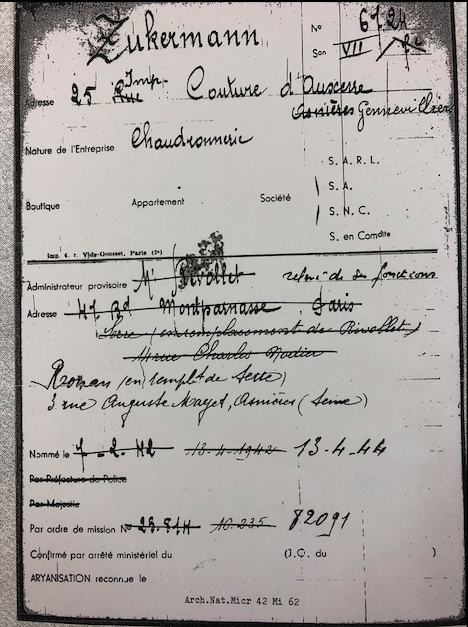 Zukermann
No 6724
Son VII
Adresse 25 Rue Imp. Couture d'Auxerre
Asnières Gennevilliers
Nature de l'Entreprise Chaudronnerie
S. A. R. L.
Boutique Appartement Société S. A.
S. N. C.
S. en Comdite
Imp. 4, r. Vide-Gousset, Paris (2e)
Administrateur provisoire Mr Rivollet relevé de ses fonctions
Adresse 47 Bd Montparnasse Paris
Serre (en remplacement de Rivollet)
rue Charles Nodier
Roman (en remplt de Serre)
3 rue Auguste Mayet, Asnières (Seine)
Nommé le 7-2-42 13-4-1942 13-4-44
Par Préfecture de Police
Par Majestic
Par ordre de mission No 10.235 82091
Confirmé par arrêté ministériel du (J.O. du )
ARYANISATION reconnue le
Arch.Nat.Micr 42 Mi 62